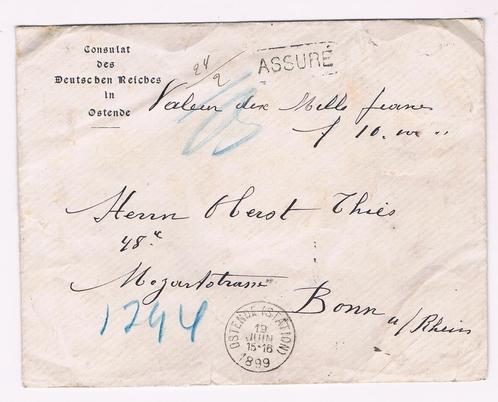 Consulat
des
Deutschen Reiches
in
Ostende
24/2
ASSURÉ
Valeur dix Mille francs
f 10.000 "
Herrn Oberst Thies
48
Mozartstrasse
Bonn
a/Rhein
1294
OSTENDE (STATION)
19
JUIN
15-16
1899